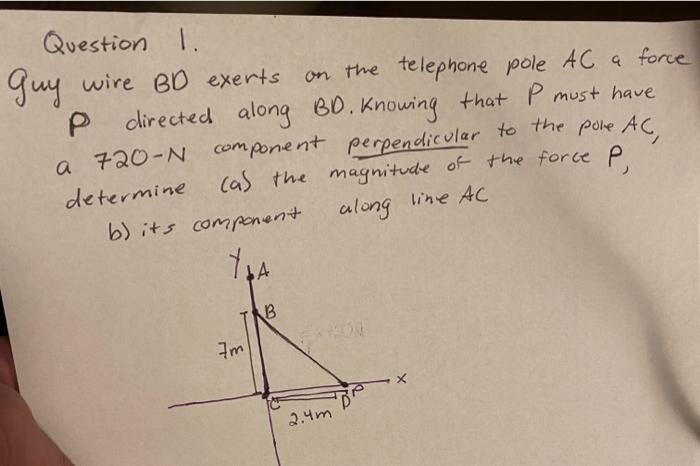 Question 1.
Guy wire BD exerts on the telephone pole AC a force
P directed along BD. Knowing that P must have
a 720-N component perpendicular to the pole AC,
determine (a) the magnitude of the force P,
b) its component along line AC
Y A
B
7m
C D P x
2.4m